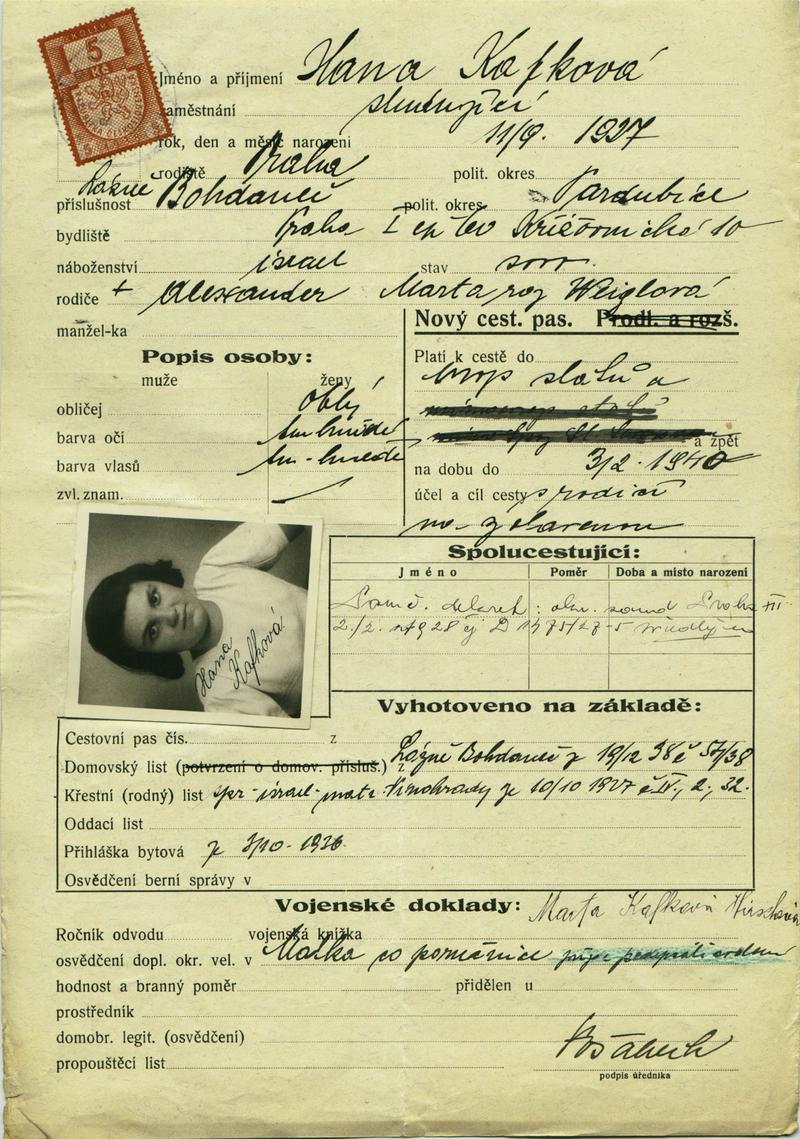 KOLEK
5
Kč
Jméno a příjmení Hana Kafková
zaměstnání
rok, den a měsíc narození 11/9. 1927
rodiště Praha polit. okres
příslušnost Lázně Bohdaneč polit. okres Pardubice
bydliště Praha I Křižovnická 10
náboženství israel stav svob.
rodiče + Alexander Marta roz Weiglová
manžel-ka
Nový cest. pas. Prodl. a rozš.
Popis osoby:
muže ženy
obličej oblý
barva očí tm hnědé
barva vlasů tm - hnědé
zvl. znam.
Platí k cestě do
evrop států a
a zpět
na dobu do 3/2. 1940
účel a cíl cesty s rodiči
na zotavenou
Hana
Kafková
Spolucestující:
Jméno Poměr Doba a místo narození
Vyhotoveno na základě:
Cestovní pas čís. z
Domovský list (potvrzení o domov. přísluš.) z Lázně Bohdaneč z 19/12 38 č 57/38
Křestní (rodný) list izrael mat. Vinohrady ze 10/10 1927 č IV., 2, 32.
Oddací list
Přihláška bytová z 3/10 - 1936
Osvědčení berní správy v
Vojenské doklady:
Marta Kafková Hirschová
Ročník odvodu vojenská knížka
osvědčení dopl. okr. vel. v Matka co poručnice
hodnost a branný poměr přidělen u
prostředník
domobr. legit. (osvědčení)
propouštěcí list
podpis úředníka